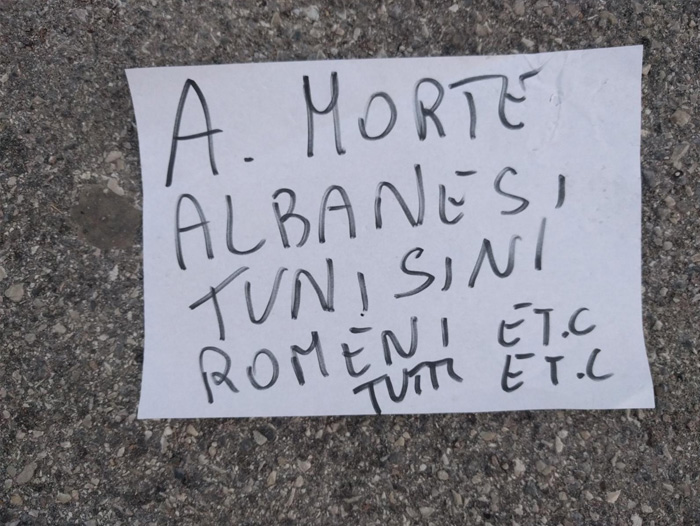 A. MORTE
ALBANESI
TUNISINI
ROMENI ET.C
TUTTI ET.C